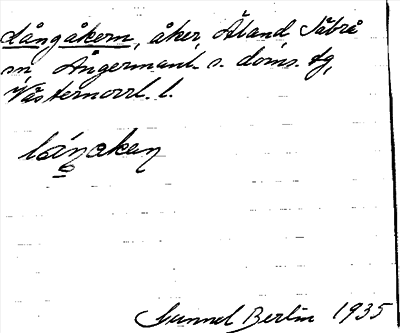 Långåkern, åker, Åland, Säbrå
sn, Ångermanl. s. doms. tg,
Västernorrl. l.
Gunnel Berlin 1935